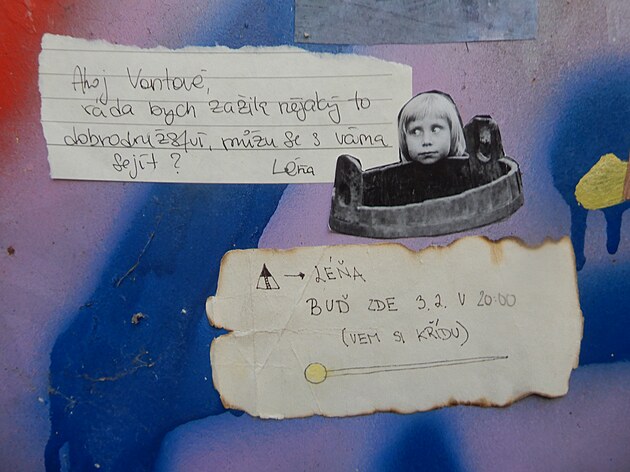 Ahoj Vontové,
ráda bych zažila nějaký to
dobrodružství, můžu se s váma
sejít?
Léňa
→ LÉŇA
BUĎ ZDE 3.2. V 20:00
(VEM SI KŘÍDU)